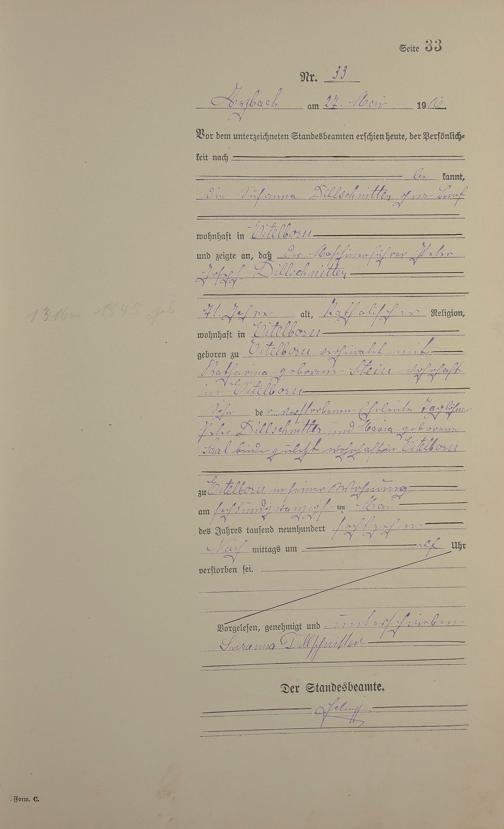 Seite 33
Nr. 33
Arzbach am 27. Mai 19
Vor dem unterzeichneten Standesbeamten erschien heute, der Persönlich-
keit nach
be kannt,
die Susanna Dillschnitter ohne Beruf
wohnhaft in Eitelborn
und zeigte an, daß der Maschinenführer Peter
Josef Dillschnitter
71 Jahre alt, katholischer Religion,
wohnhaft in Eitelborn
geboren zu Eitelborn verheiratet mit
Katharina geborenen Stein wohnhaft
in Eitelborn
Sohn der verstorbenen Eheleute
Peter Dillschnitter und geborenen
beide zuletzt wohnhaft in Eitelborn
zu Eitelborn in seiner Wohnung
am sechsundzwanzigsten Mai
des Jahres tausend neunhundert sechzehn
Nach mittags um elf Uhr
verstorben sei.
Vorgelesen, genehmigt und unterschrieben
Susanna Dillschnitter
Der Standesbeamte.
Form. C.